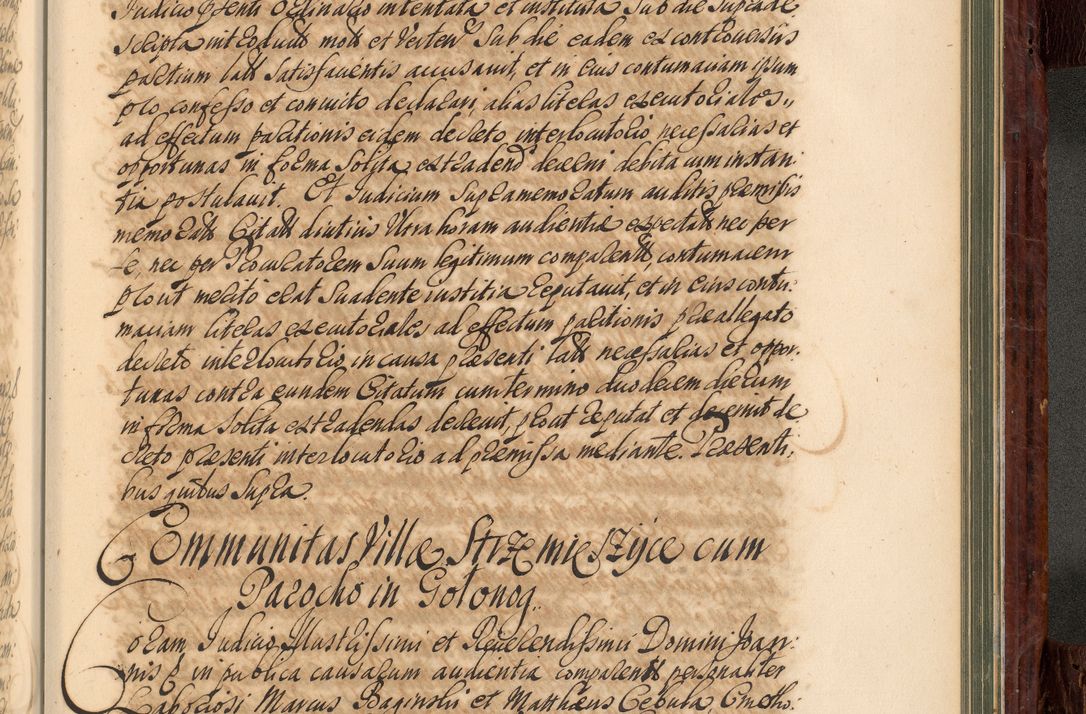 Judicio Pſenti Ordinario intentata et instituta Sub die Supradē
Scripta introduct mott et Verteñ Sub die eadem ex controversiis
partium latt Satisfacientis accusavit, et in Eius contumaciam ipsum
pro confesso et convicto declarari, alias literas executoriales
ad effectum paritionis eidem decreto interlocutorio necessarias et
opportunas in forma Solita extradend decerni debita cum instan:
tia postulavit. Et Judicium Supramemoratum auditis præmissis
memoratt Citatt diutius Ultra horam audientiæ expectatt nec per
se, nec per Procuratorem Suum legitimum comparentt, contumacem
prout merito erat Suadente iustitia reputavit, et in eius contu:
maciam literas executoriales ad effectum paritionis præallegato
decreto interlocutorio in causa præsenti latt necessarias et oppor:
tunas contra eundem Citatum cum termino duodecem dierum
in forma Solita extradendas decrevit, prout reputat et decernit de
creto præsenti interlocutorio ad præmissa mediante. Præsenti:
bus quibus Supra.
Communitas Villæ Strzemieszyce cum
Parocho in Gołonog.
Coram Judicio Illustrissimi et Reverendissimi Domini Joan:
nis P in publica causarum audientia comparentt personaliter
Laboriosi Marcus Baginski et Matthæus Cebula, Cmetho: